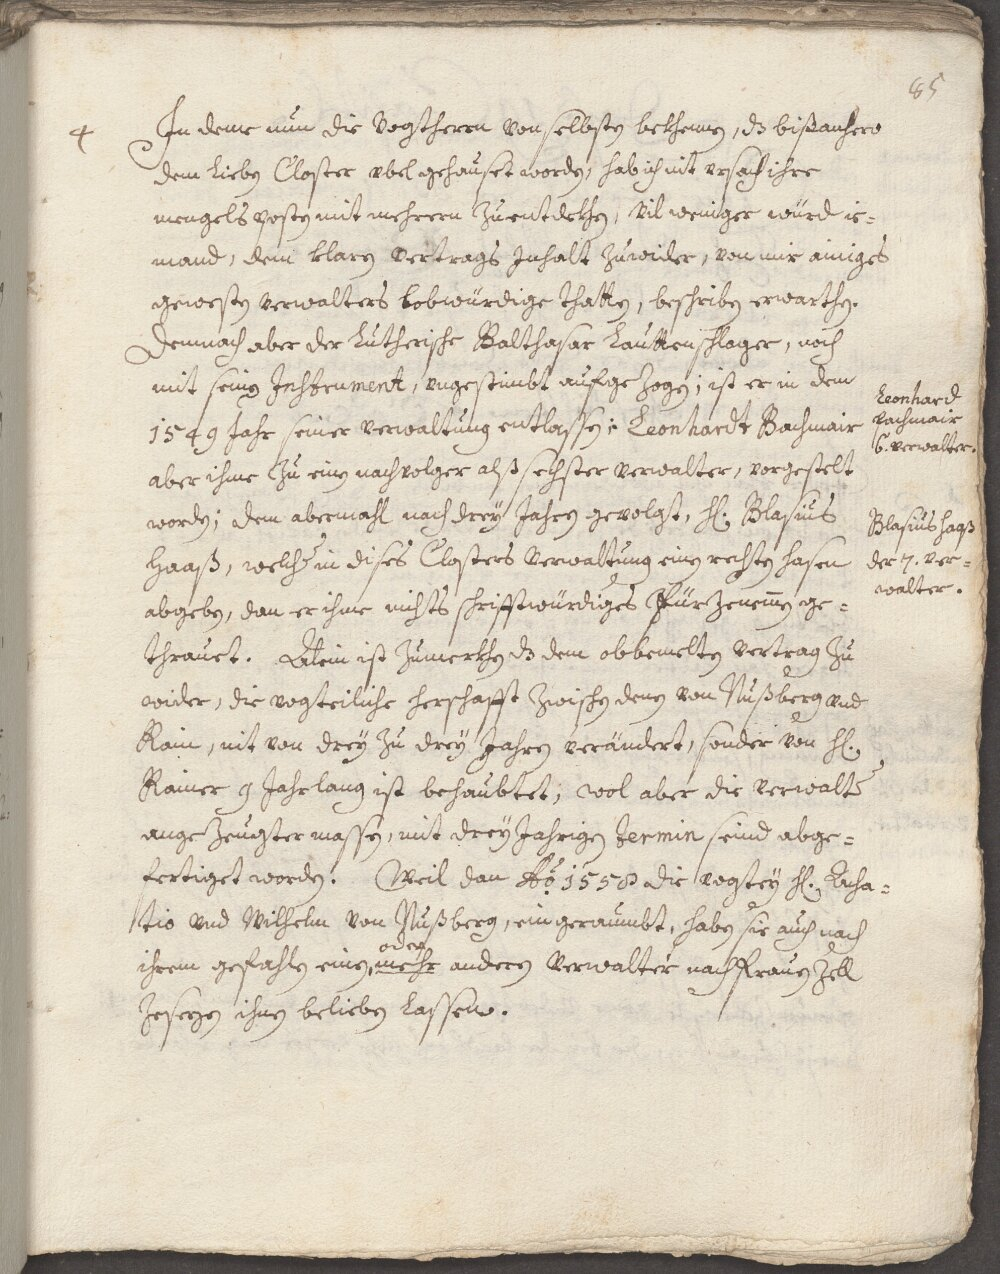 85
4 In deme nun die Vogtherrn von selbsten bekhennen, dz bißanhero
dem lieben Closter vbel gehauset worden, hab ich nit vrsach ihre
mengels posten mit mehrern zuentdekhen, vil weniger würd ie-
mand, dem klaren vertrags Inhalt zuwider, von mir ainiges
gewesten verwalters lobwürdige thatten, beschriben erwarthen.
Demnach aber der Lutherische Balthasar Lauttenschlager, noch
mit seinen Instrument, vngestimbt aufgezogen; ist er in dem
1549 Jahr seiner verwaltung entlassen: Leonhardt Bachmair
aber ihme zu einen nachvolger alß sechster verwalter, vorgestelt
worden; dem abermahl nach drey Jahren gevolgt, H. Blasius
Haaß, welcher in dises Closters verwaltung einen rechten hasen
abgeben, dan er ihme nichts schrifftwürdiges fürzenemmen ge-
thrauet. Allein ist zumerkhen dz dem obbemelten vertrag zu
wider, die vogteiliche herschafft zwischen denen von Nußberg vnd
Rain, nit von drey zu drey Jahren verändert, sonder von H.
Rainer 9 Jahr lang ist behaubtet; wol aber die verwalter
angezeugster massen, mit drey Jahrigen termin seind abge-
fertiget worden. Weil dan Ao. 1558 die vogtey H. Acha-
tio vnd Wilhelm von Nußberg, eingeraumbt, haben sie auch nach
ihrem gefahlen einen oder mehr anderen verwalter nach Frauen Zell
zesezen ihnen belieben lassen.
Leonhard
Bachmair
6. verwalter.
Blasius Haaß
der 7. ver-
walter.